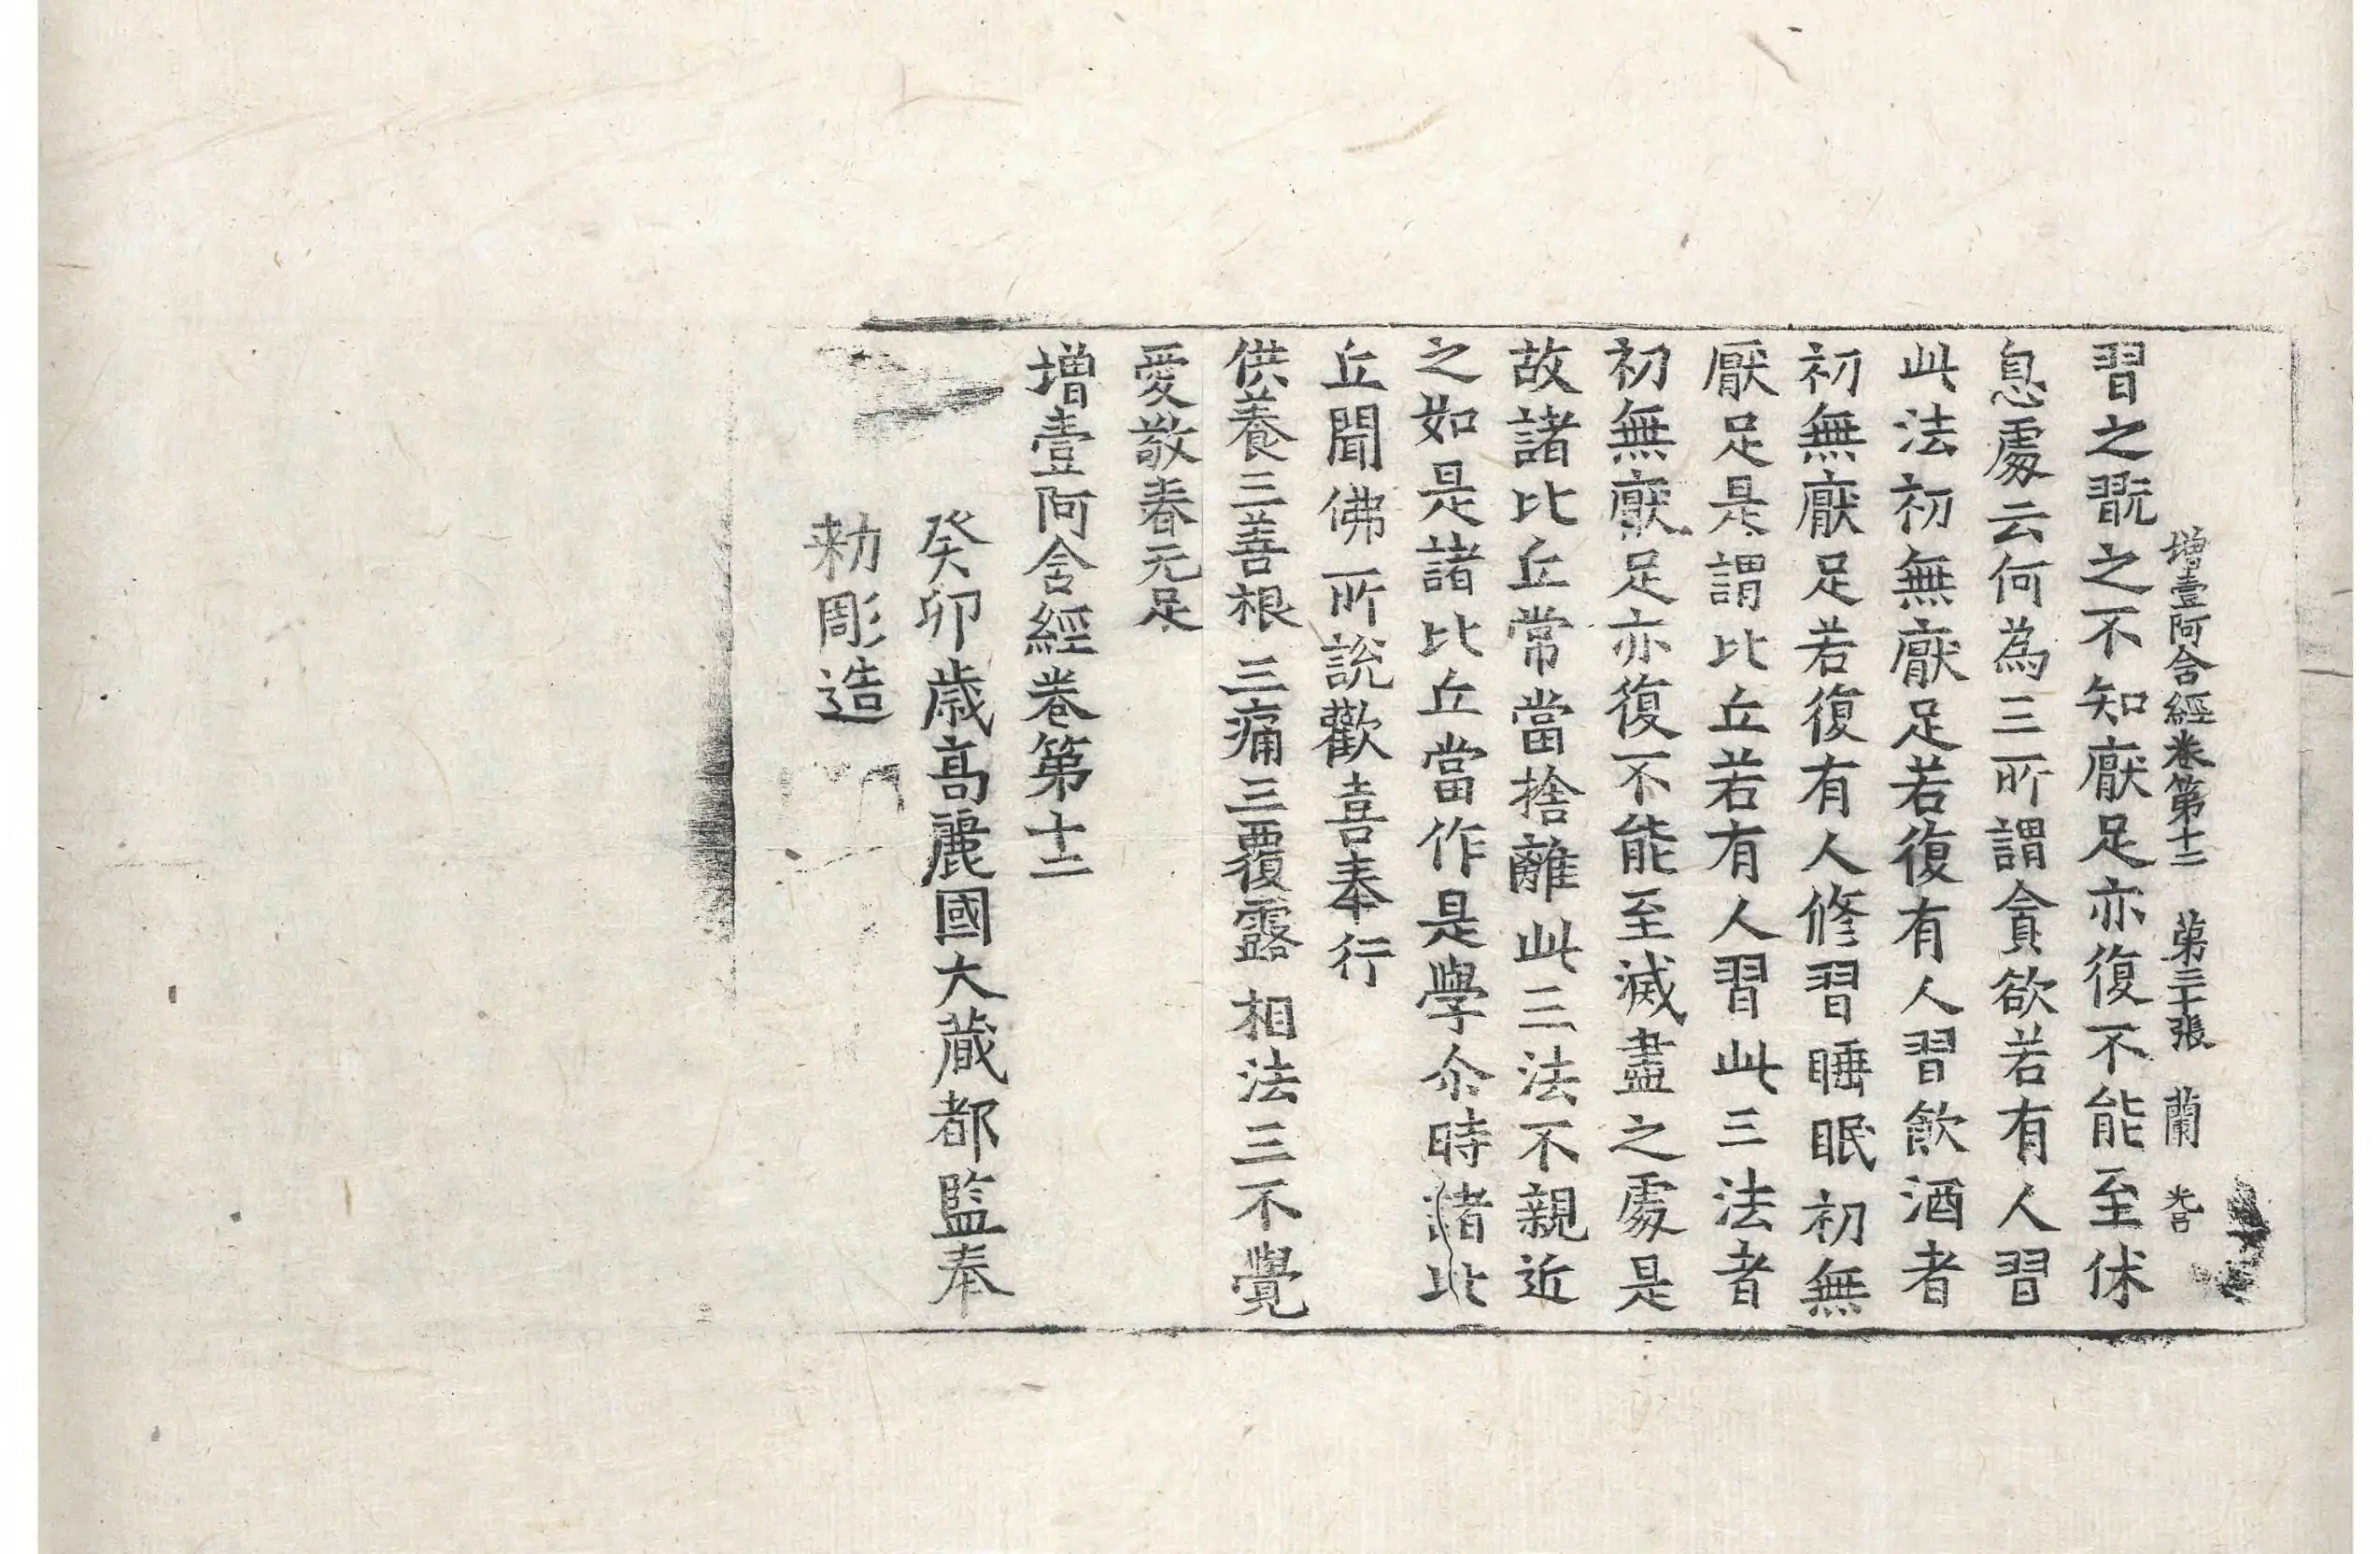 增壹阿含經卷第十二 第三十張 蘭 光呂
習之翫之不知猒足亦復不能至休
息處云何為三所謂貪欲若有人習
此法初無猒足若復有人習飲酒者
初無猒足若復有人修習睡眠初無
厭足是謂比丘若有人習此三法者
初無猒足亦復不能至滅盡之處是
故諸比丘常當捨離此三法不親近
之如是諸比丘當作是學尒時諸比
丘聞佛所說歡喜奉行
供養三善根 三痛三覆露 相法三不覺
愛敬春元足
增壹阿含經卷第十二
癸卯歲高麗國大藏都監奉
勑彫造